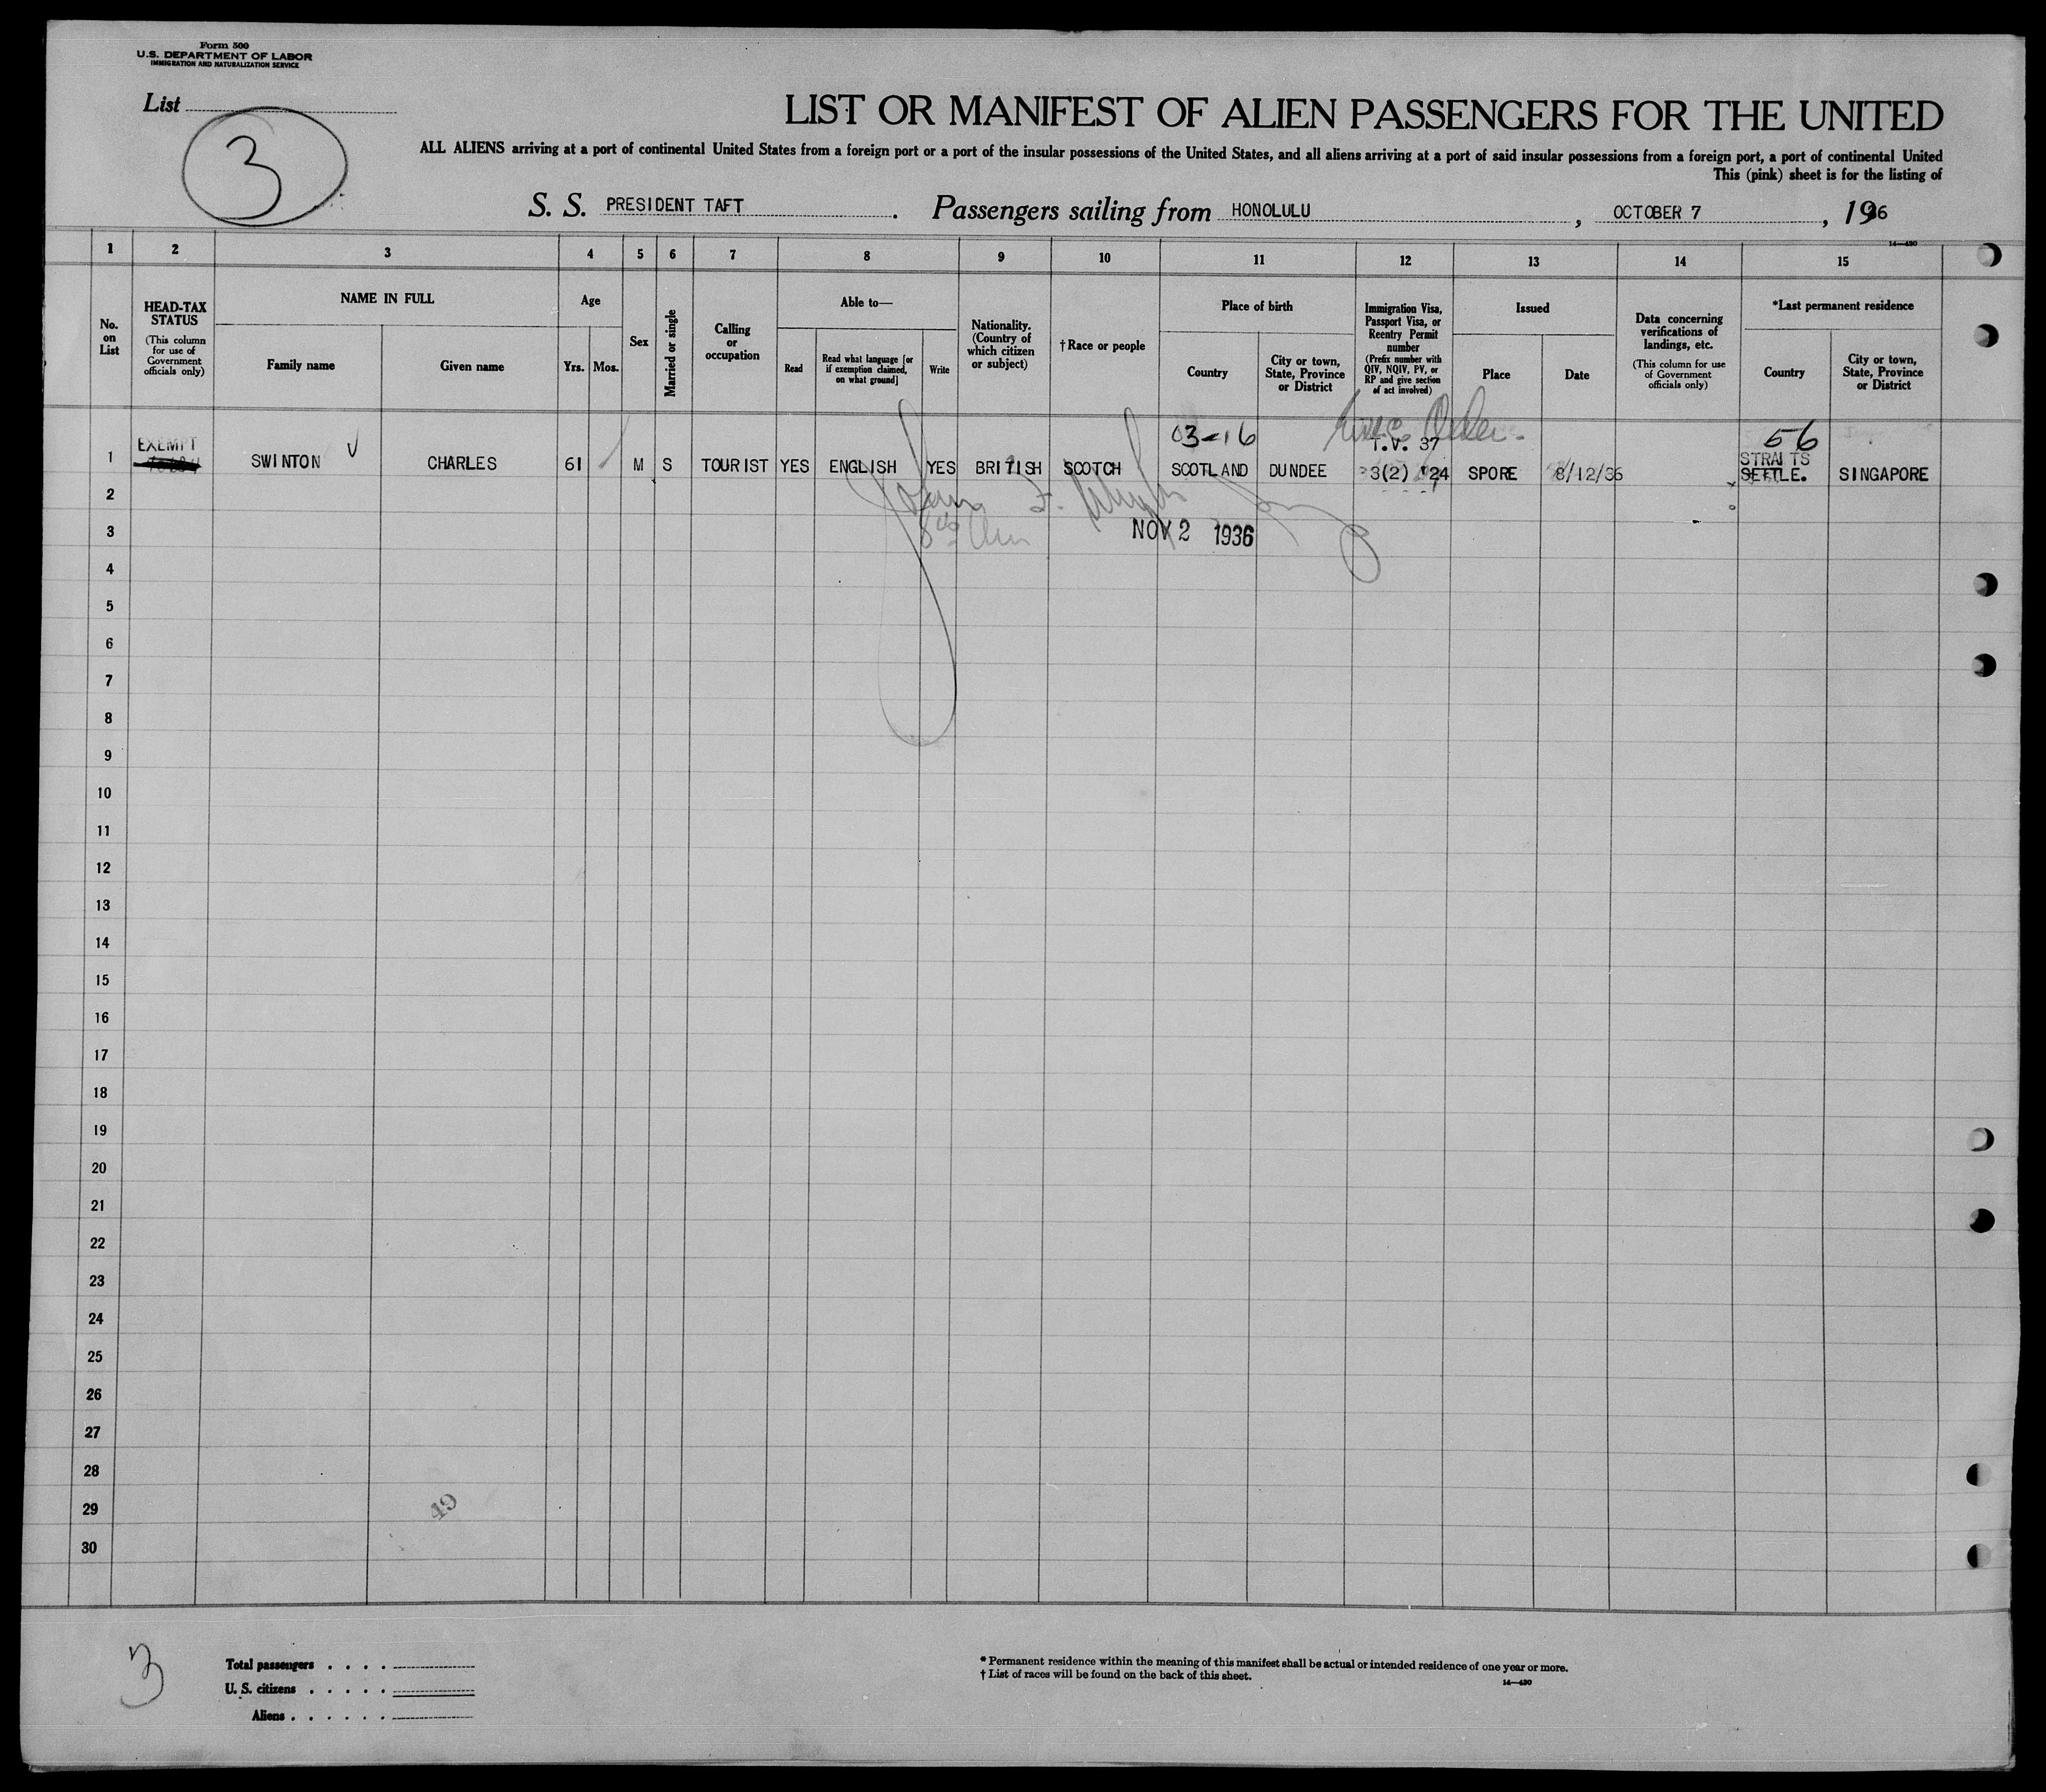 Form 500
U.S. DEPARTMENT OF LABOR
IMMIGRATION AND NATURALIZATION SERVICE
List
3
LIST OR MANIFEST OF ALIEN PASSENGERS FOR THE UNITED
ALL ALIENS arriving at a port of continental United States from a foreign port or a port of the insular possessions of the United States, and all aliens arriving at a port of said insular possessions from a foreign port, a port of continental United
This (pink) sheet is for the listing of
S. S. PRESIDENT TAFT . Passengers sailing from HONOLULU , OCTOBER 7 , 1936
14—430
1 2 3 4 5 6 7 8 9 10 11 12 13 14 15
No. on List
HEAD-TAX STATUS
(This column for use of Government officials only)
NAME IN FULL
Family name
Given name
Age
Yrs. Mos.
Sex
Married or single
Calling or occupation
Able to—
Read
Read what language [or if exemption claimed, on what ground]
Write
Nationality. (Country of which citizen or subject)
†Race or people
Place of birth
Country
City or town, State, Province or District
Immigration Visa, Passport Visa, or Reentry Permit number
(Prefix number with QIV, NQIV, PV, or RP and give section of act involved)
Issued
Place
Date
Data concerning verifications of landings, etc.
(This column for use of Government officials only)
*Last permanent residence
Country
City or town, State, Province or District
03-16 56
EXEMPT T.V. 37 STRAITS
1 SWINTON CHARLES 61 M S TOURIST YES ENGLISH YES BRITISH SCOTCH SCOTLAND DUNDEE 3(2) '24 SPORE 8/12/36 SETTLE. SINGAPORE
2
3 NOV 2 1936
4
5
6
7
8
9
10
11
12
13
14
15
16
17
18
19
20
21
22
23
24
25
26
27
28
29
49
30
3
Total passengers . . . .
U. S. citizens . . . . .
Aliens . . . . . .
* Permanent residence within the meaning of this manifest shall be actual or intended residence of one year or more.
† List of races will be found on the back of this sheet.
14—430